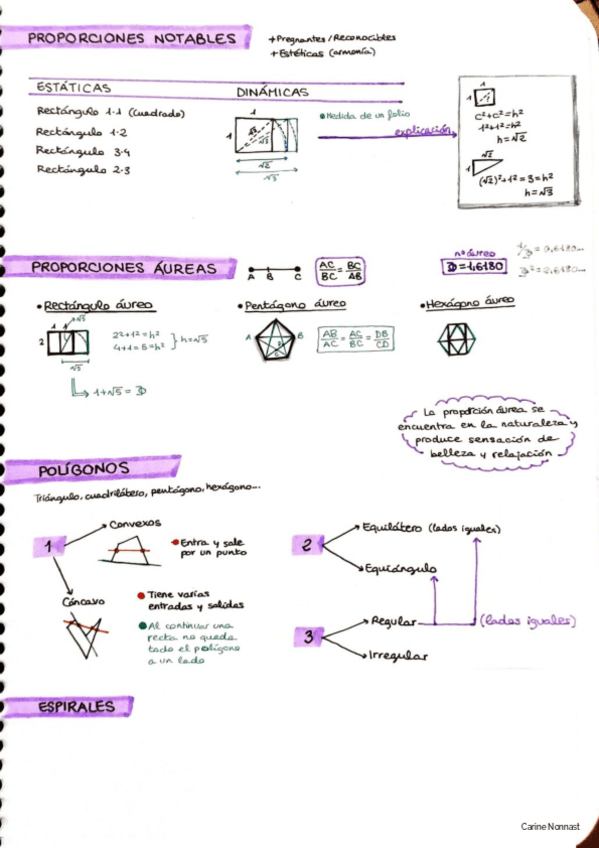 PROPORCIONES NOTABLES
+ Pregnantes / Reconocibles
+ Estéticas (armonía)
ESTÁTICAS
DINÁMICAS
Rectángulo 1·1 (cuadrado)
Rectángulo 1·2
Rectángulo 3·4
Rectángulo 2·3
1
1
√2
√3
√2
√3
• Medida de un folio
explicación
1
1
c²+c²=h²
1²+1²=h²
h=√2
√2
1
(√2)²+1²=3=h²
h=√3
PROPORCIONES ÁUREAS
A B C
AC/BC = BC/AB
nº áureo
=1,6180
= 0,6180...
= 2,6180...
• Rectángulo áureo
√5
2
1
√5
2²+1²=h²
4+1=5=h²
h=√5
1+√5 =
• Pentágono áureo
A
B
AB/AC = AC/BC = DB/CD
• Hexágono áureo
La proporción áurea se
encuentra en la naturaleza y
produce sensación de
belleza y relajación
POLÍGONOS
Triángulo, cuadrilátero, pentágono, hexágono...
1
Convexos
• Entra y sale
por un punto
Cóncavo
• Tiene varias
entradas y salidas
• Al continuar una
recta no queda
todo el polígono
a un lado
2
Equilátero (lados iguales)
Equiángulo
3
Regular
(lados iguales)
Irregular
ESPIRALES
Carine Nonnast